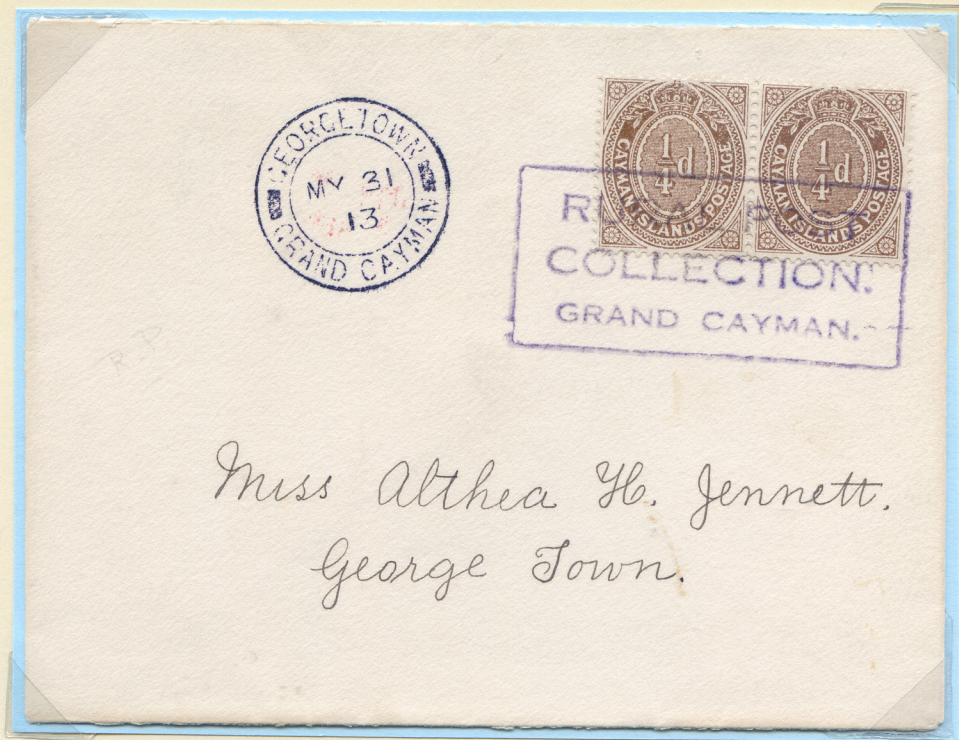 GEORGETOWN
MY 31
13
GRAND CAYMAN
1/4d
CAYMAN ISLANDS POSTAGE
1/4d
CAYMAN ISLANDS POSTAGE
POST
COLLECTION.
GRAND CAYMAN.
R.P
Miss Althea H. Jennett.
George Town.